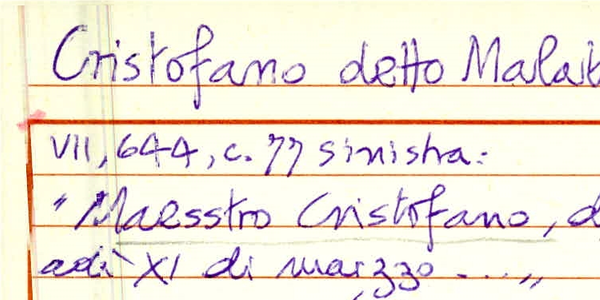 Cristofano detto Malat
VII, 644, c. 77 sinistra:
"Maesstro Cristofano, d
adì XI di marzzo ...."